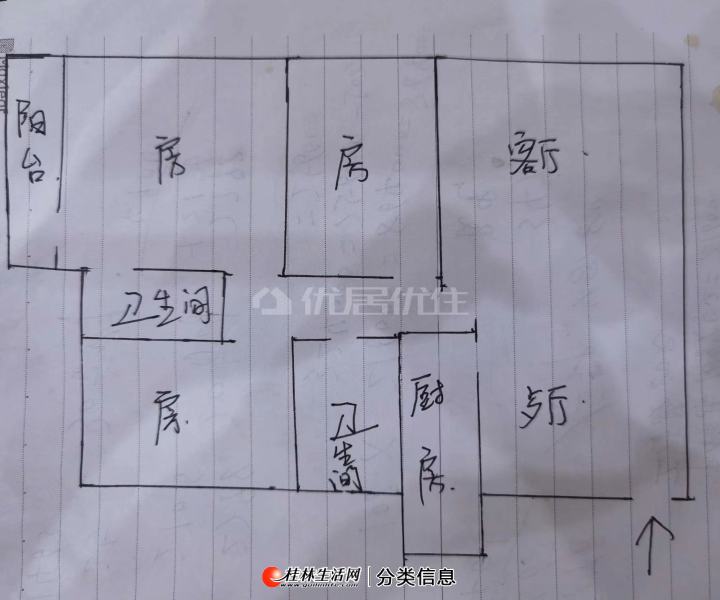 阳台
房
房
客厅
卫生间
优居优住
房
卫生间
厨房
歺厅
桂林生活网
www.guilinlife.com
分类信息